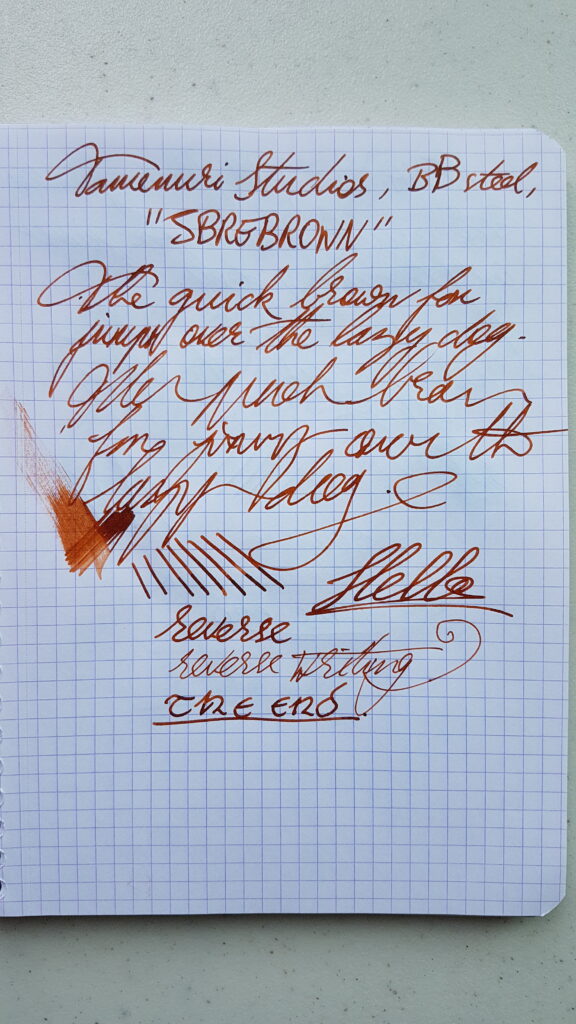 Tamenuri Studios, BB steel,
"SBREBROWN"
The quick brown fox
jumps over the lazy dog.
The quick brown
fox jumps over the
lazy dog.
Hello
reverse
reverse writing
THE END.